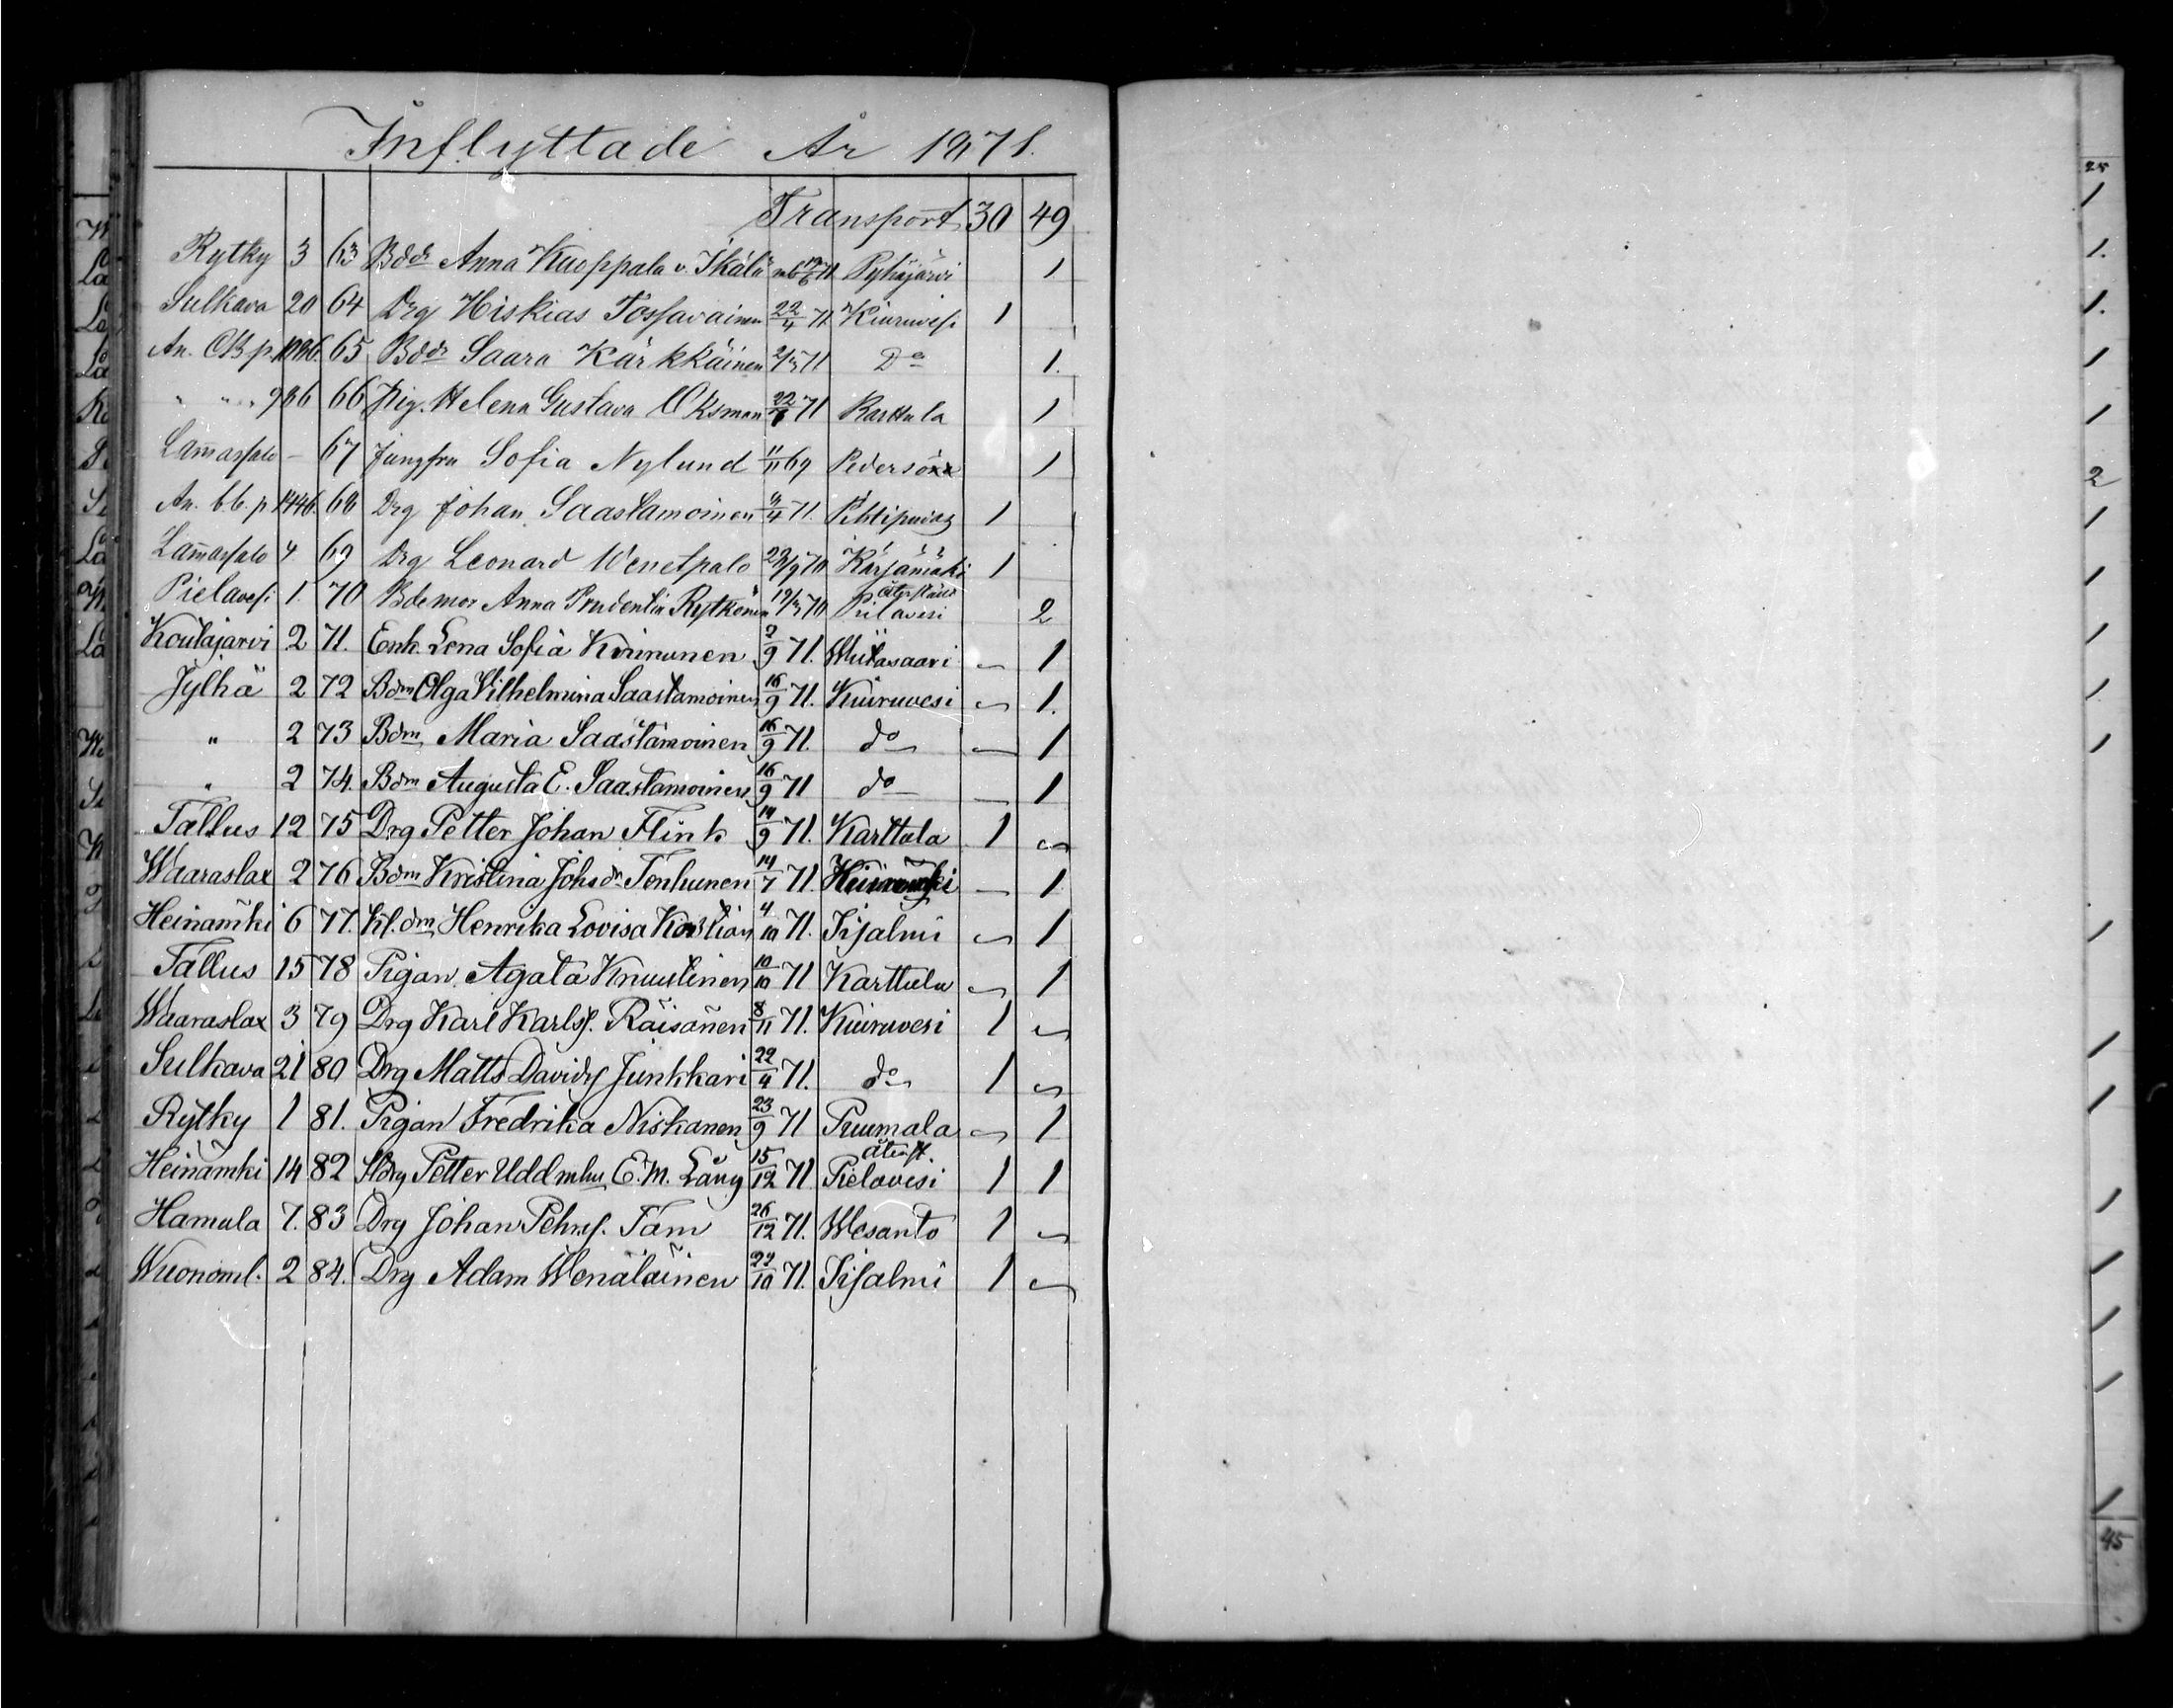 Inflyttade År 1871.
Transport 30 49
Rytky 3 63 Bdr Anna Kuoppala v. Ikälä 71 Pyhäjärvi 1
Sulkava 20 64 Drg Hiskias Tossavainen 22/4 71 Kiuruvesi 1
An. p. 65 Bddr Saara Kärkkäinen 71 Do 1.
" " " 966 66 Pig. Helena Gustava Oksman 71 Karttula 1
Lam̄assalo — 67 Jungfru Sofia Nylund 11/11 69 Pedersöre 1
An. p 1446. 68 Drg Johan Saastamoinen 71. Pihtipudas 1
Lam̄assalo 4. 69 Drg Leonard Wenetpalo 23/9 70 Kärsämäki 1
Pielavesi 1. 70 Bdemor Anna Prudentia Rytkönen 70 Pielavesi 2
Koulajärvi 2 71. Enk. Lena Sofia Kinnunen 2/9 71. Wiitasaari — 1
Jylhä 2 72 Bdm Olga Vilhelmina Saastamoinen 16/9 71. Kiuruvesi — 1.
" 2 73 Bdm Maria Saastamoinen 16/9 71. do — 1
" 2 74. Bdm Augusta E. Saastamoinen 16/9 71 do — 1
Tallus 12 75 Drg Petter Johan Flink 14/9 71. Karttula 1 —
Waaraslax 2 76 Bdm Kristina Johsdr Tenhunen 14/7 71. — 1
Heinämki 6 77. Kl. dm Henrika Lovisa 4/10 71. Iisalmi — 1
Tallus 15 78 Pigan Agata Knuutinen 10/10 71 Karttula — 1
Waaraslax 3 79 Drg Karl Karlsf. Räisänen 8/11 71. Kiuruvesi 1 —
Sulkava 21 80 Drg Matts Davidsf Junkkari 22/4 71. do 1 —
Rytky 1 81. Pigan Fredrika Niskanen 23/9 71 Puumala — 1
återfl.
Heinämki 14 82 Petter Udd mhu E. M. Lång 15/12 71 Pielavesi 1 1
Hamula 7. 83 Drg Johan Pehrsf. Tam 26/12 71. Wesanto 1 —
Wuonoml. 2 84. Drg Adam Wenäläinen 71. Iisalmi 1 —
45